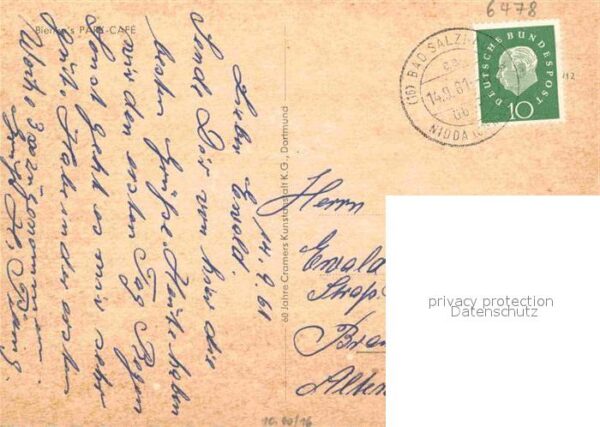 6478
Bierings PARK-CAFÉ
(16) BAD SALZHAUSEN
14.9.61-
NIDDA
DEUTSCHE BUNDESPOST
10
14.9.61
Lieber Ewald.
Sende Dir von hier die
besten Grüße. Heute haben
wir den ersten Tag Regen
sonst geht es mir sehr
gute. Habe in der ersten
Woche 3 zugenommen.
60 Jahre Cramers Kunstanstalt K.G., Dortmund
Herrn
Ewald
Straß
Bra
Alten
privacy protection
Datenschutz